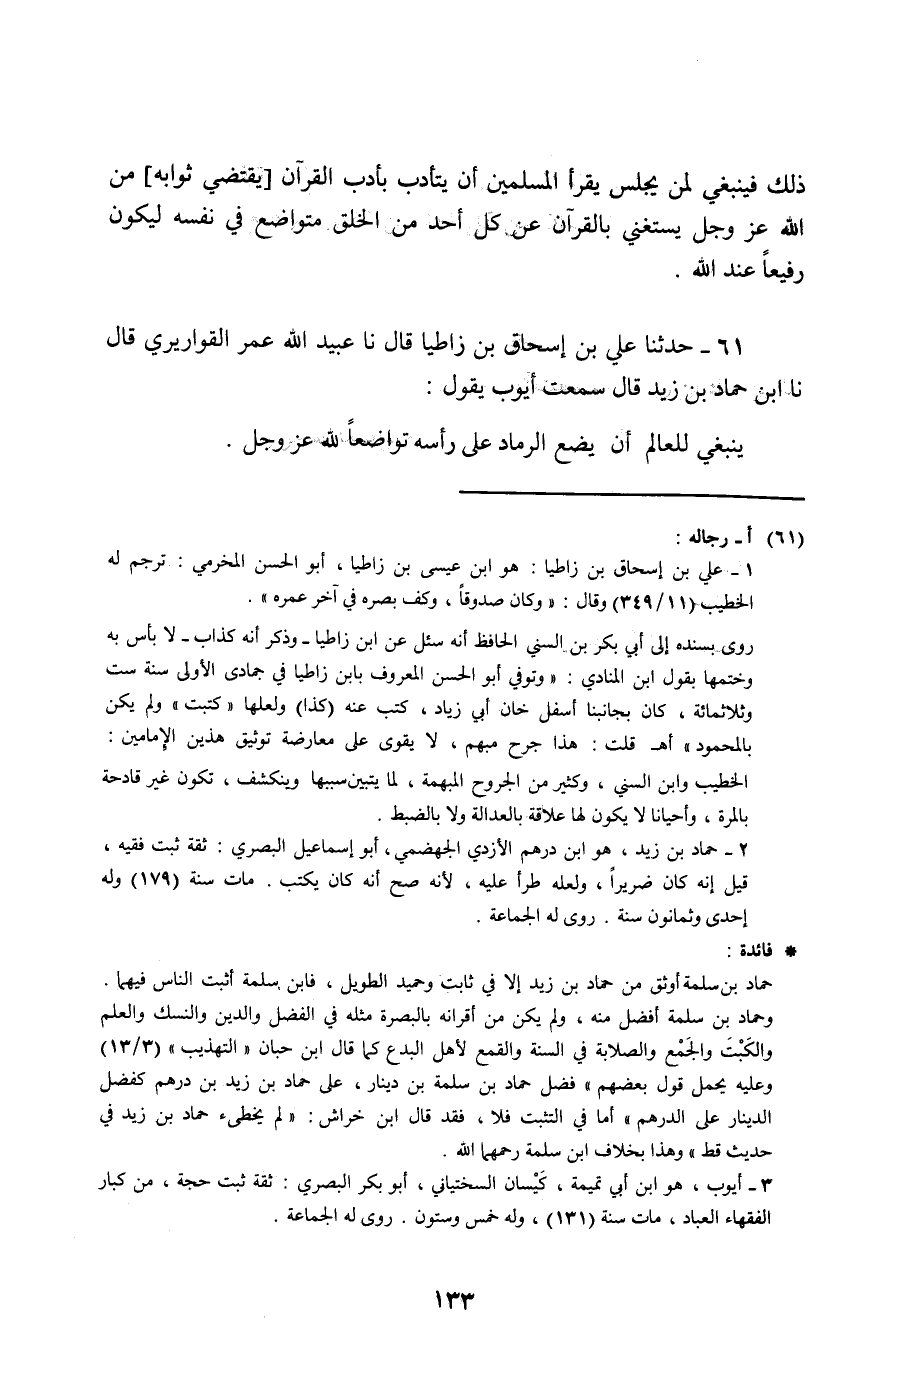 ذلك فينبغي لمن يجلس يقرأ المسلمين أن يتأدب بأدب القرآن [يقتضي ثوابه] من
الله عز وجل يستغني بالقرآن عن كل أحد من الخلق متواضع في نفسه ليكون
رفيعاً عند الله .
٦١ ـ حدثنا علي بن إسحاق بن زاطيا قال نا عبيد الله عمر القواريري قال
نا ابن حماد بن زيد قال سمعت أيوب يقول :
ينبغي للعالم أن يضع الرماد على رأسه تواضعاً لله عز وجل .
(٦١) أ ـ رجاله :
١ ـ علي بن إسحاق بن زاطيا : هو ابن عيسى بن زاطيا ، أبو الحسن المخرمي : ترجم له
الخطيب (٣٤٩/١١) وقال : « وكان صدوقاً ، وكف بصره في آخر عمره » .
روى بسنده إلى أبي بكر بن السني الحافظ أنه سئل عن ابن زاطيا ـ وذكر أنه كذاب ـ لا بأس به
وختمها بقول ابن المنادي : « وتوفي أبو الحسن المعروف بابن زاطيا في جمادى الأولى سنة ست
وثلاثمائة ، كان بجانبنا أسفل خان أبي زياد ، كتب عنه (كذا) ولعلها « كتبت » ولم يكن
بالمحمود » أهـ قلت : هذا جرح مبهم ، لا يقوى على معارضة توثيق هذين الإمامين :
الخطيب وابن السني ، وكثير من الجروح المبهمة ، لما يتبين سببها وينكشف ، تكون غير قادحة
بالمرة ، وأحيانا لا يكون لها علاقة بالعدالة ولا بالضبط .
٢ ـ حماد بن زيد ، هو ابن درهم الأزدي الجهضمي ، أبو إسماعيل البصري : ثقة ثبت فقيه ،
قيل إنه كان ضريراً ، ولعله طرأ عليه ، لأنه صح أنه كان يكتب . مات سنة (١٧٩) وله
إحدى وثمانون سنة . روى له الجماعة .
* فائدة :
حماد بن سلمة أوثق من حماد بن زيد إلا في ثابت وحميد الطويل ، فابن سلمة أثبت الناس فيهما .
وحماد بن سلمة أفضل منه ، ولم يكن من أقرانه بالبصرة مثله في الفضل والدين والنسك والعلم
والكَبْتَ والجَمْع والصلابة في السنة والقمع لأهل البدع كما قال ابن حبان « التهذيب » (١٣/٣)
وعليه يحمل قول بعضهم » فضل حماد بن سلمة بن دينار ، على حماد بن زيد بن درهم كفضل
الدينار على الدرهم » أما في التثبت فلا ، فقد قال ابن خراش : « لم يخطىء حماد بن زيد في
حديث قط » وهذا بخلاف ابن سلمة رحمهما الله .
٣ ـ أيوب ، هو ابن أبي تميمة ، كَيْسان السختياني ، أبو بكر البصري : ثقة ثبت حجة ، من كبار
الفقهاء العباد ، مات سنة (١٣١) ، وله خمس وستون . روى له الجماعة .
١٣٣